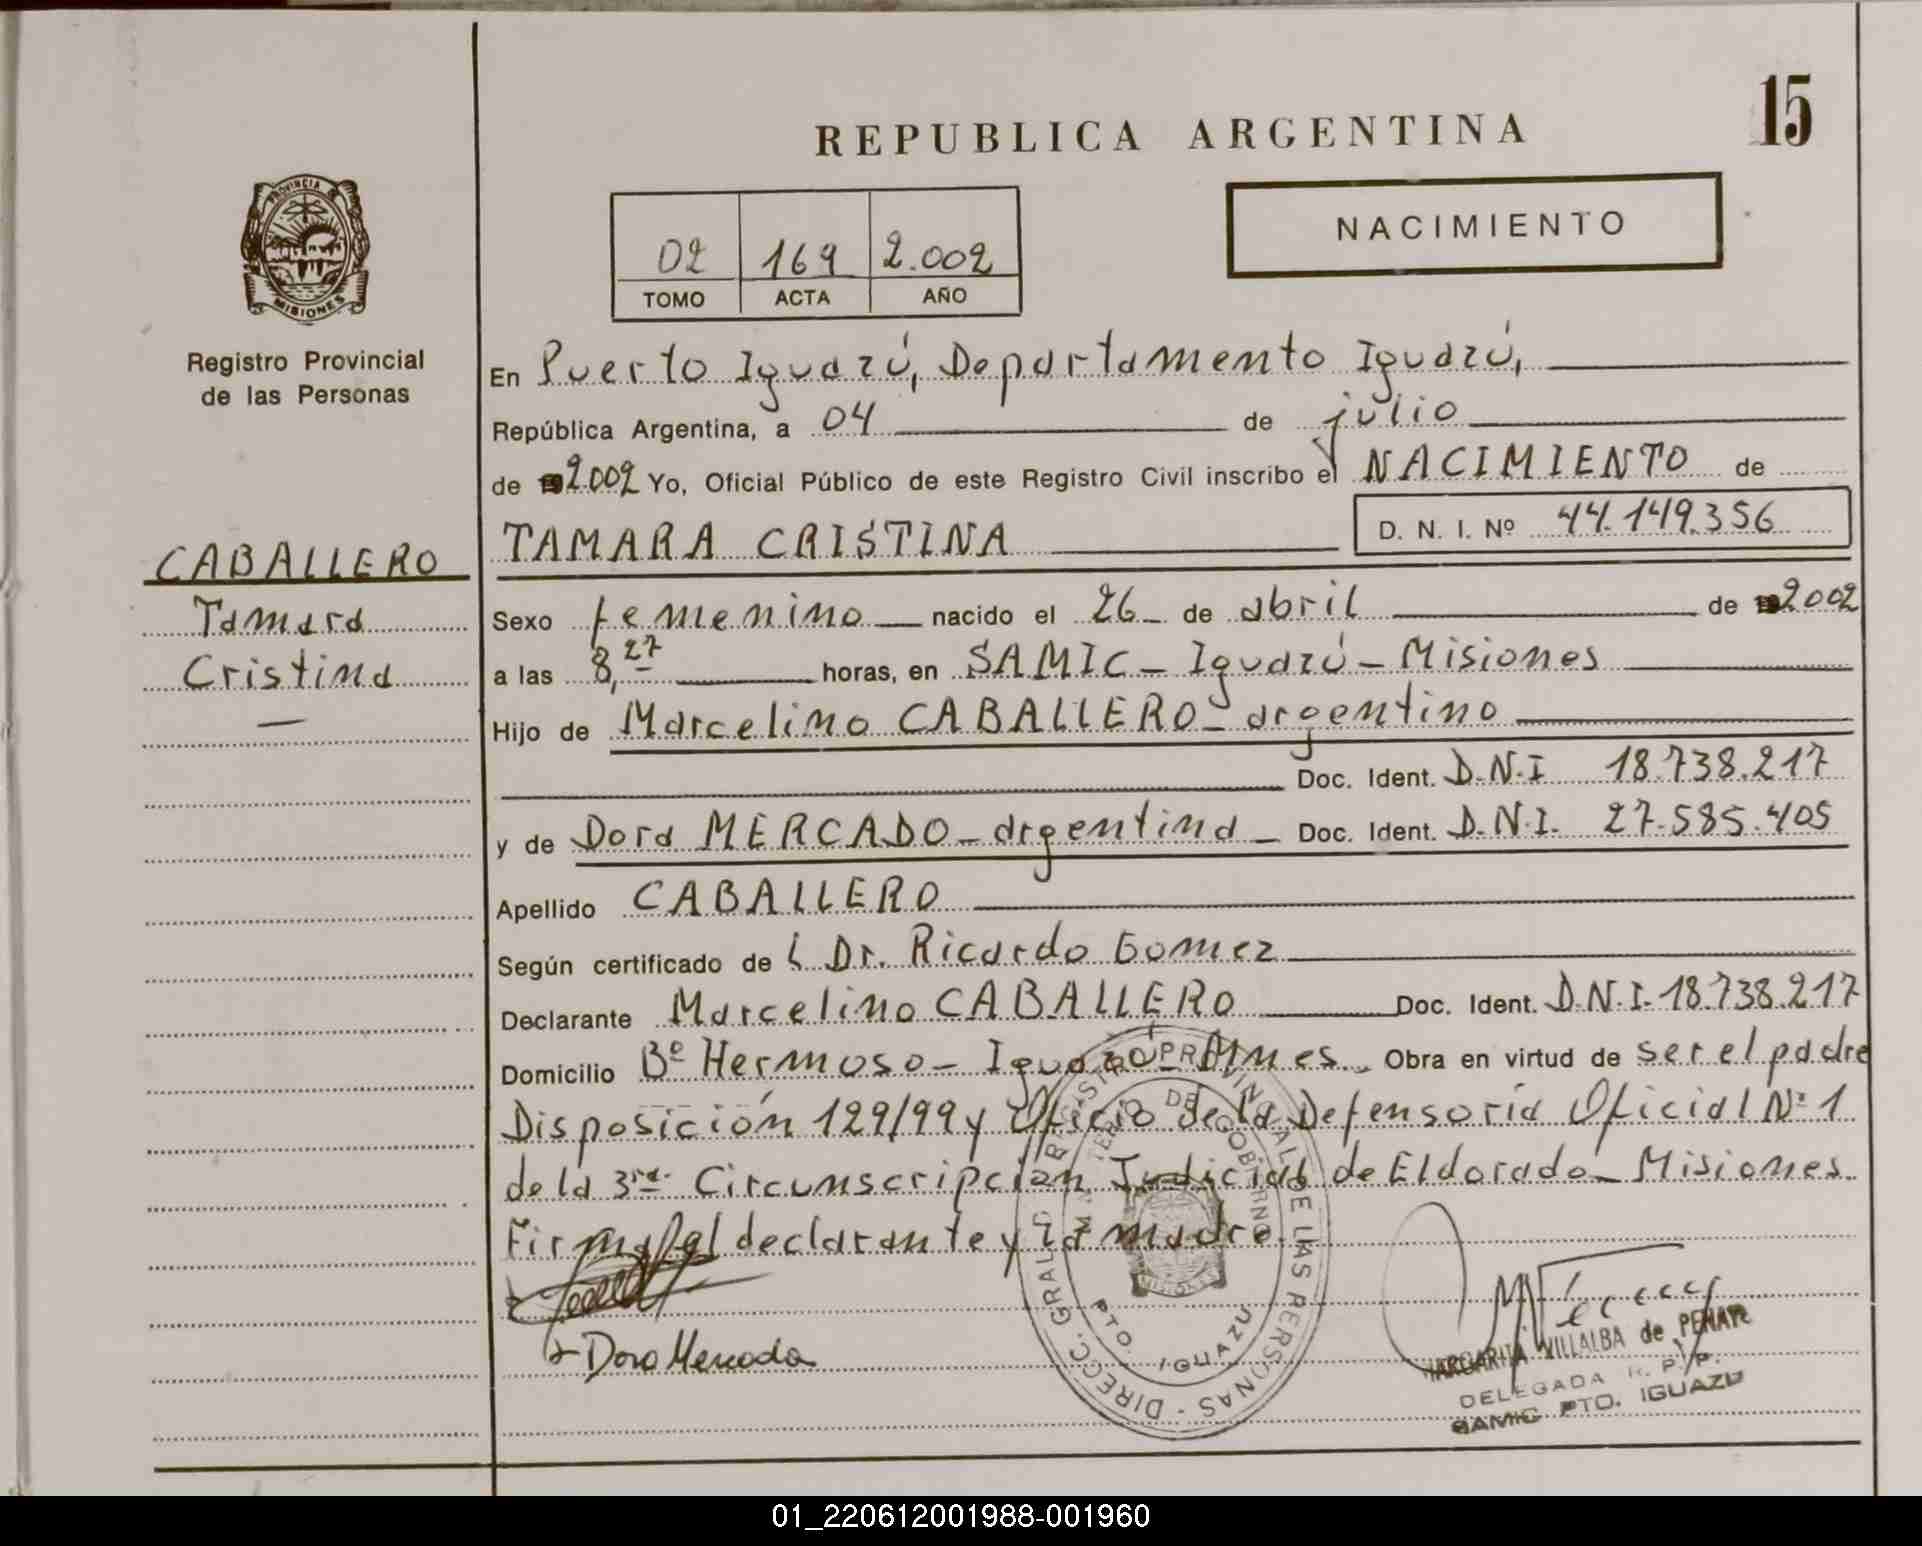 15
REPUBLICA ARGENTINA
NACIMIENTO
02 169 2.002
TOMO ACTA AÑO
PROVINCIA DE MISIONES
Registro Provincial
de las Personas
CABALLERO
Tamara
Cristina
—
En Puerto Iguazú, Departamento Iguazú,
República Argentina, a 04 de julio
de 2.002 Yo, Oficial Público de este Registro Civil inscribo el NACIMIENTO de
TAMARA CRISTINA D. N. I. Nº 44.149.356
Sexo femenino nacido el 26 de abril de 2002
a las 8,27 horas, en SAMIC - Iguazú - Misiones
Hijo de Marcelino CABALLERO - argentino
Doc. Ident. D.N.I 18.738.217
y de Dora MERCADO - argentina - Doc. Ident. D.N.I. 27.585.405
Apellido CABALLERO
Según certificado de l Dr. Ricardo Gomez
Declarante Marcelino CABALLERO Doc. Ident. D.N.I. 18.738.217
Domicilio Bº Hermoso - Iguazú - Mnes. Obra en virtud de ser el padre
Disposición 129/99 y Oficio de la Defensoría Oficial Nº 1
de la 3ra. Circunscripción Judicial de Eldorado - Misiones.
Firma del declarante y la madre.
Dora Mercado
DIRECC. GRAL. REGISTRO PROVINCIAL DE LAS PERSONAS
MINISTERIO DE GOBIERNO
PTO. IGUAZU
MARGARITA VILLALBA de
DELEGADA R. P. P.
SAMIC PTO. IGUAZU
01_220612001988-001960